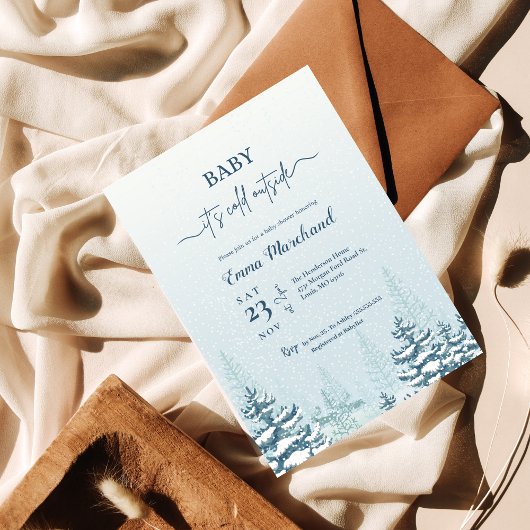 BABY
it's cold outside
Please join us for a baby shower honoring
Emma Marchand
SAT
23
NOV
The Henderson Home
4737 Morgan Ford Road St.
Louis, MO 63116
Rsvp by Nov, 25 · To Ashley 555.555.555
Registered at BabyList